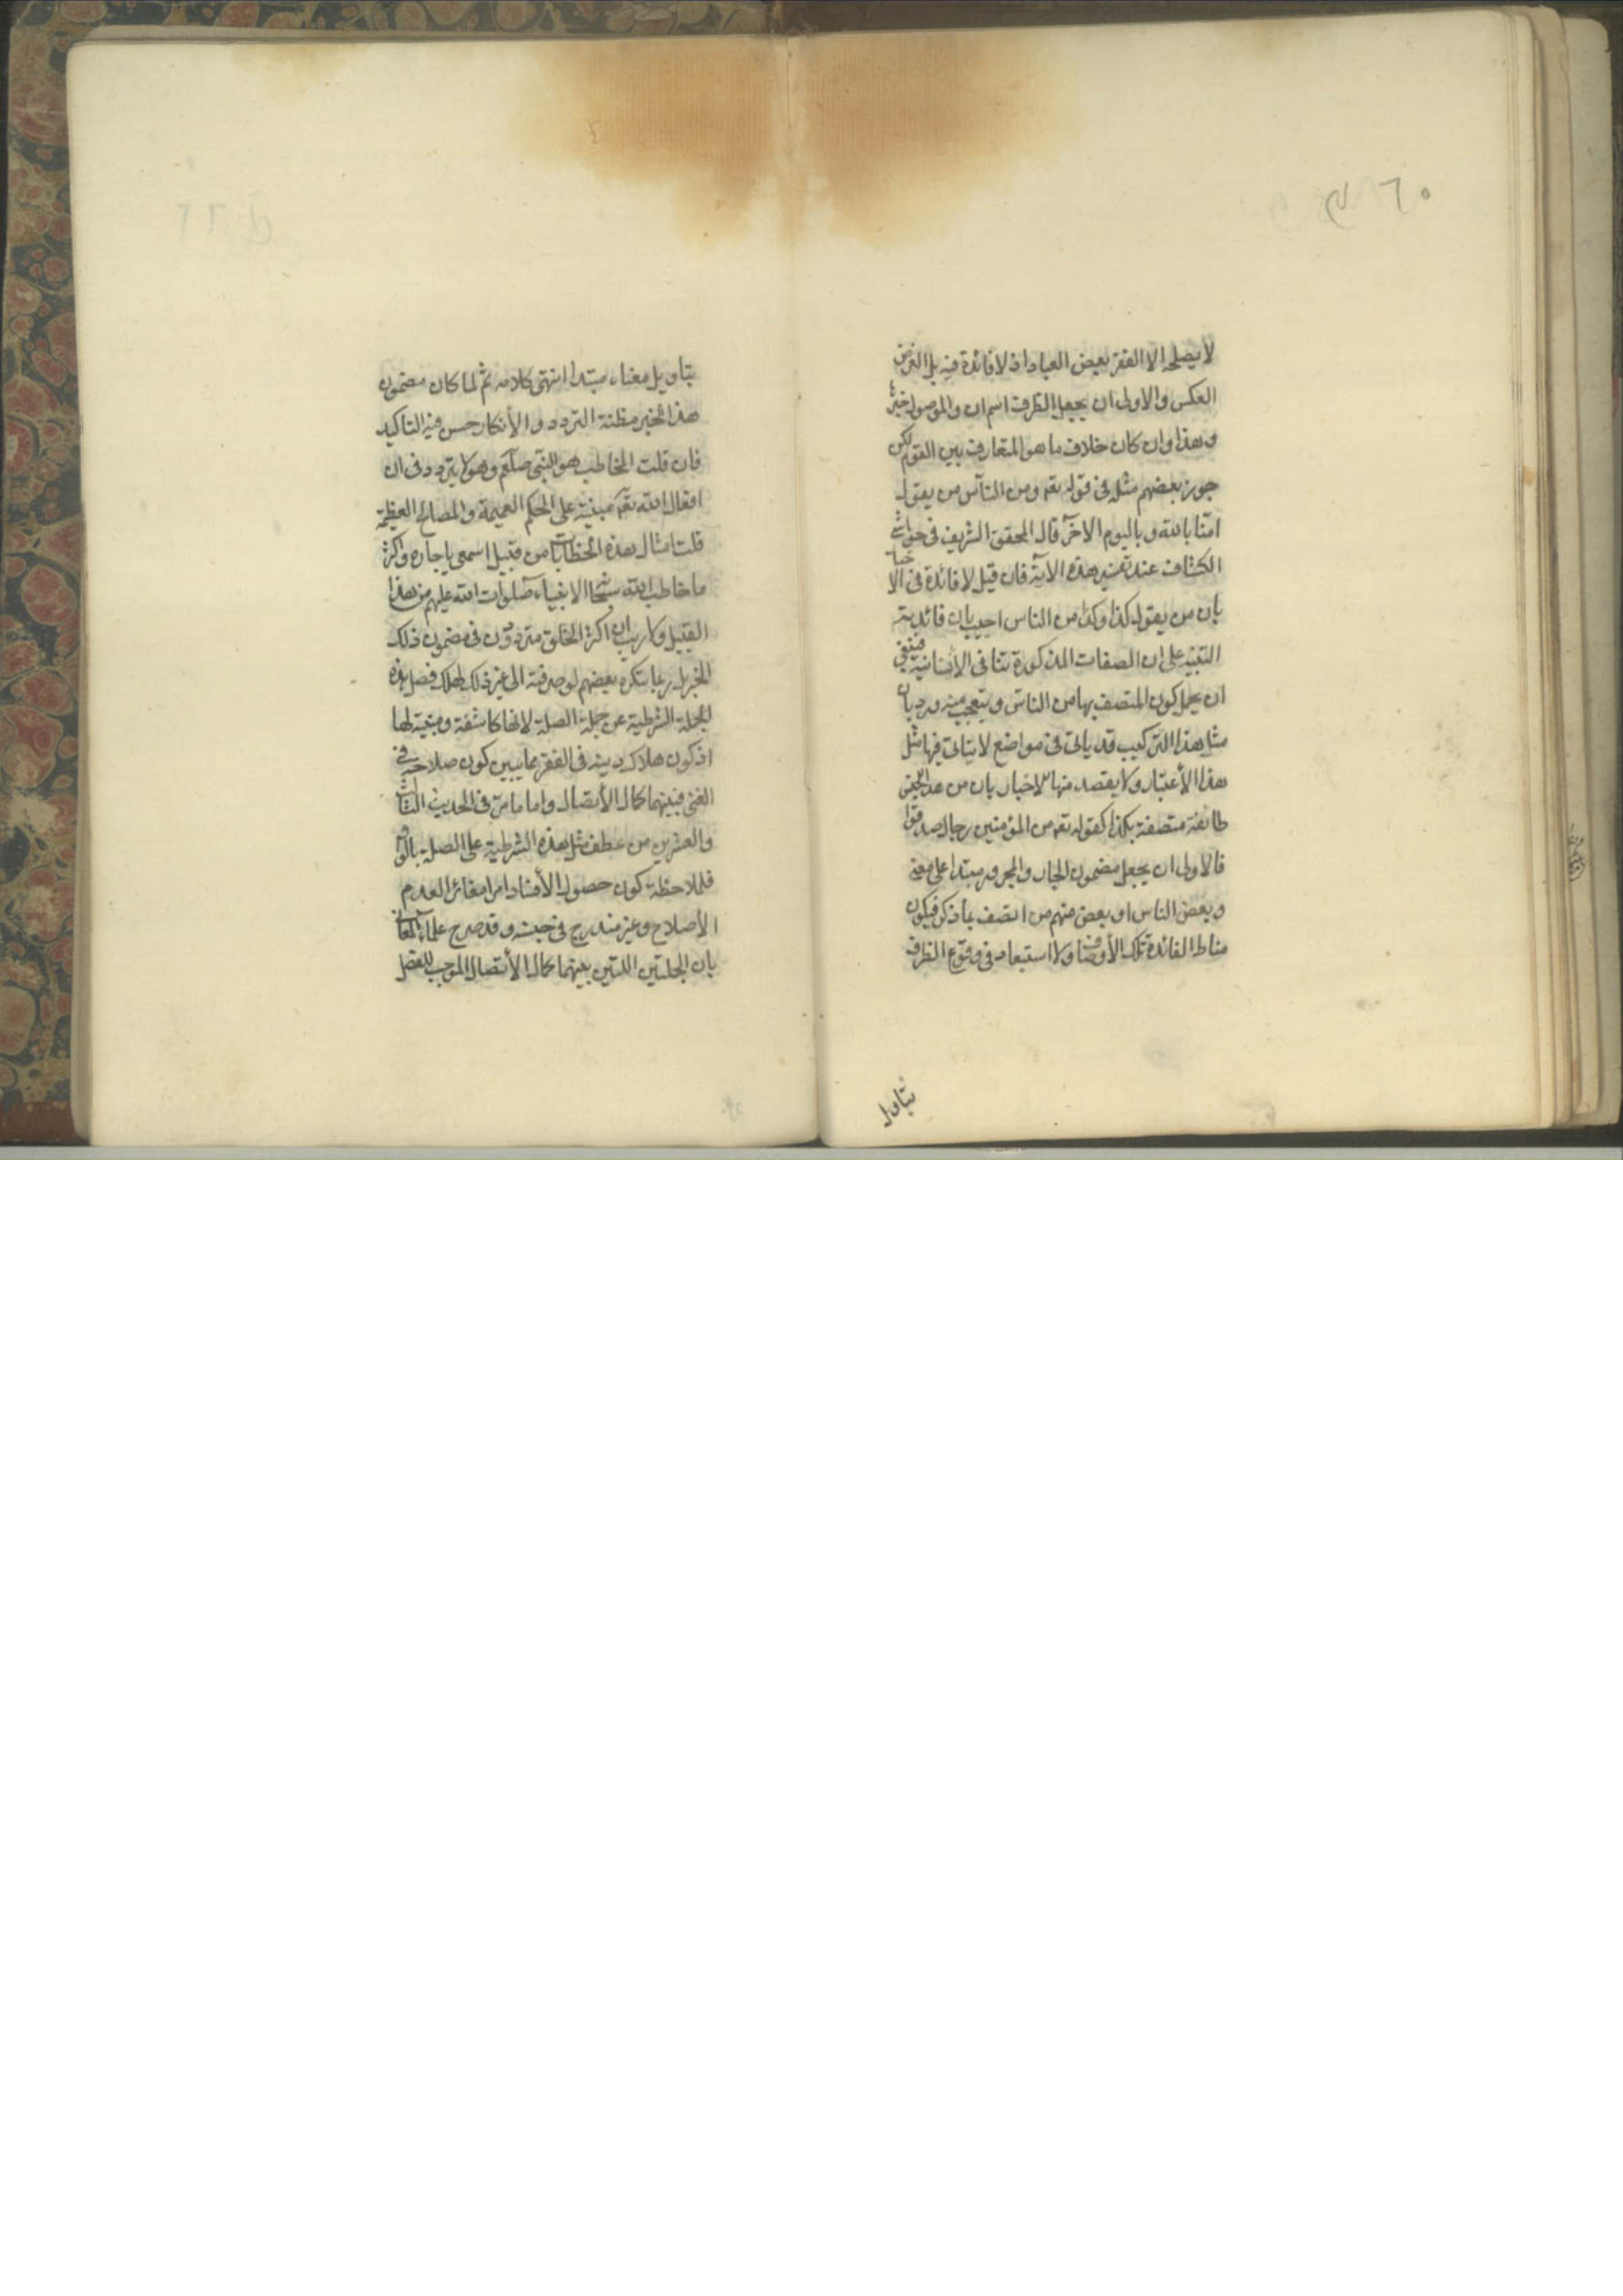 لا يصلحه الا الفقر بعض العباد اذ لا فائدة فيه بل الغرض
العكس والاولى ان يجعل الظرف اسم ان والموصول خبرها
وهذا وان كان خلاف ما هو المتعارف بين القوم لكن
جوز بعضهم مثله فى قوله تعه ومن الناس من يقول
امنا بالله وباليوم الاخر قال المحقق الشريف فى حواشى
الكشاف عند تفسير هذه الآية فان قيل لا فائدة فى الاخبا
بان من يقول كذا وكذا من الناس اجيب بان فائدته
التنبيه على ان الصفات المذكورة تنافى الأنسانية فينبغى
ان يجهل كون المتصف بها من الناس ويتعجب منه ورد بان
مثل هذا التركيب قد ياتى فى مواضع لا يتاتى فيها مثل
هذا الأعتبار ولا يقصد منها الاخبار بان من هذا الجنس
طائفة متصفة بكذا كقوله تعه من المؤمنين رجال صدقوا
فالاولى ان يجعل مضمون الجار والمجرور مبتدا على معنى
وبعض الناس او بعض منهم من اتصف بما ذكر فيكون
مناط الفائدة تلك الأوصاف ولا استبعاد فى وقوع الظرف
بتاويل
بتاويل معناه مبتدا انتهى كلامه ثم لما كان مضمون
هذا الخبر مظنة التردد والأنكار حسن فيه التاكيد
فان قلت المخاطب هو النبى صلعم وهو لا يتردد فى ان
افعال الله تعه مبنية على الحكم العميمة والمصالح العظيمة
قلت امثال هذه الخطابات من قبيل اسمعى يا جاره واكثر
ما خاطب الله سبحا الانبياء صلوات الله عليهم من هذا
القبيل ولا ريب ان اكثر الخلق مترددون فى مضمون ذلك
الخبر بل ربما ينكره بعضهم لو صرفته الى غير ذلك لهلك فصل هذه
الجملة الشرطية عن جملة الصلة لانها كاشفة ومبينة لها
اذ كون هلاك دينه فى الفقر مما يبين كون صلاحه فى
الغنى فبينهما كمال الأتصال واما ما مر فى الحديث الثالث
والعشرين من عطف مثل هذه الشرطية على الصلة بالواو
فلملاحظة كون حصول الأفساد امرا مغائرا لعدم
الأصلاح وغير مندرج فى جنسه وقد صرح علماء المعانى
بان الجملتين اللتين بينهما كمال الأتصال الموجب للفصل